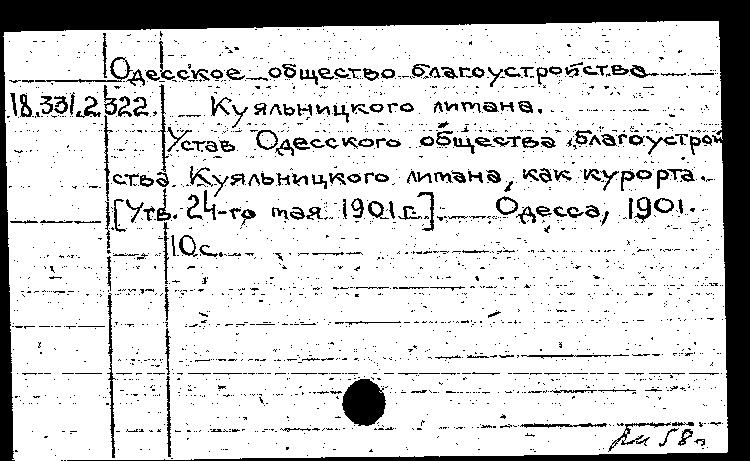 Одесское общество благоустройства
18.331.2.322. Куяльницкого лимана.
Устав Одесского общества благоустрой
ства Куяльницкого лимана, как курорта.
[Утв. 24-го мая 1901 г.]. Одесса, 1901.
10 с.
58 г.